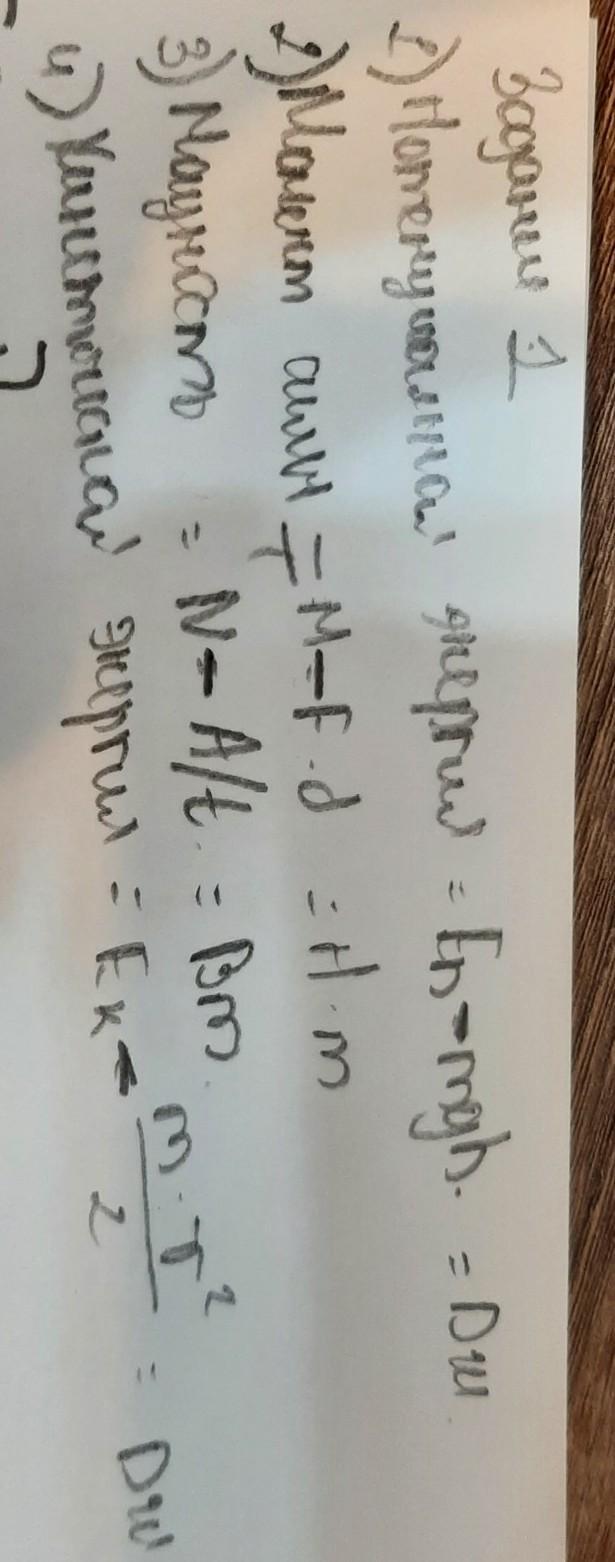 Задание 1
1) Потенциальная энергия = Еп = mgh. = Дж
2) Момент силы = M = F · d = Н · m
3) Мощность = N = A/t. = Вт
4) Кинетическая энергия = Eк = m · v² / 2 = Дж